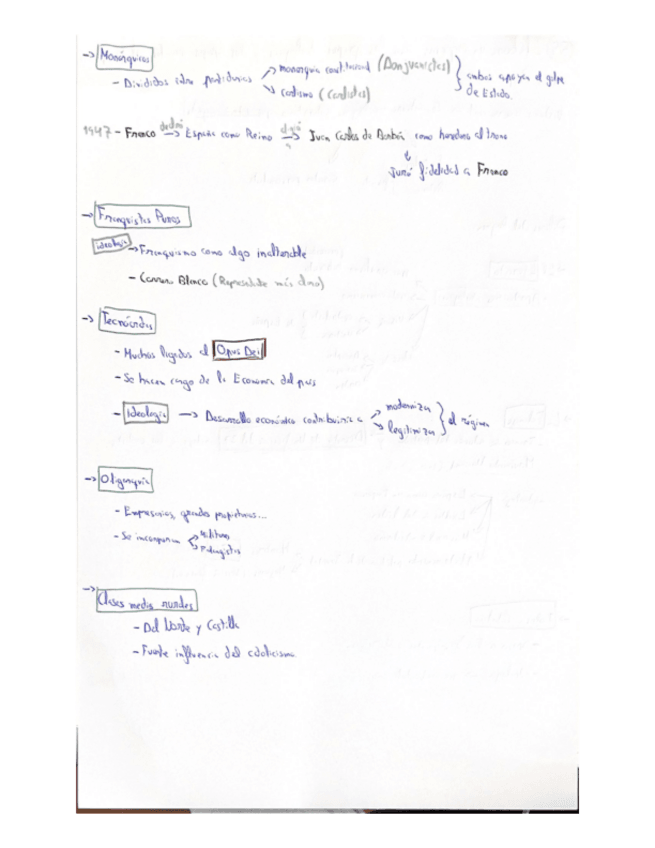 -> Monárquicos
- Divididos entre partidarios -> monarquía constitucional (Donjuanistas) } ambos apoyan el golpe de Estado
-> carlismo (Carlistas)
1947 - Franco declaró -> España como Reino eligió -> Juan Carlos de Borbón como heredero al trono
Juró fidelidad a Franco
-> Franquistas Puros
Ideología -> Franquismo como algo inalterable
- Carrero Blanco (Representante más claro)
-> Tecnócratas
- Muchos ligados al Opus Dei
- Se hacen cargo de la Economía del país
- Ideología -> Desarrollo económico contribuiría a -> modernizar } el régimen
-> legitimizar
-> Oligarquía
- Empresarios, grandes propietarios...
- Se incorporan -> Militares
-> Falangistas
-> Clases medias rurales
- Del Norte y Castilla
- Fuerte influencia del catolicismo